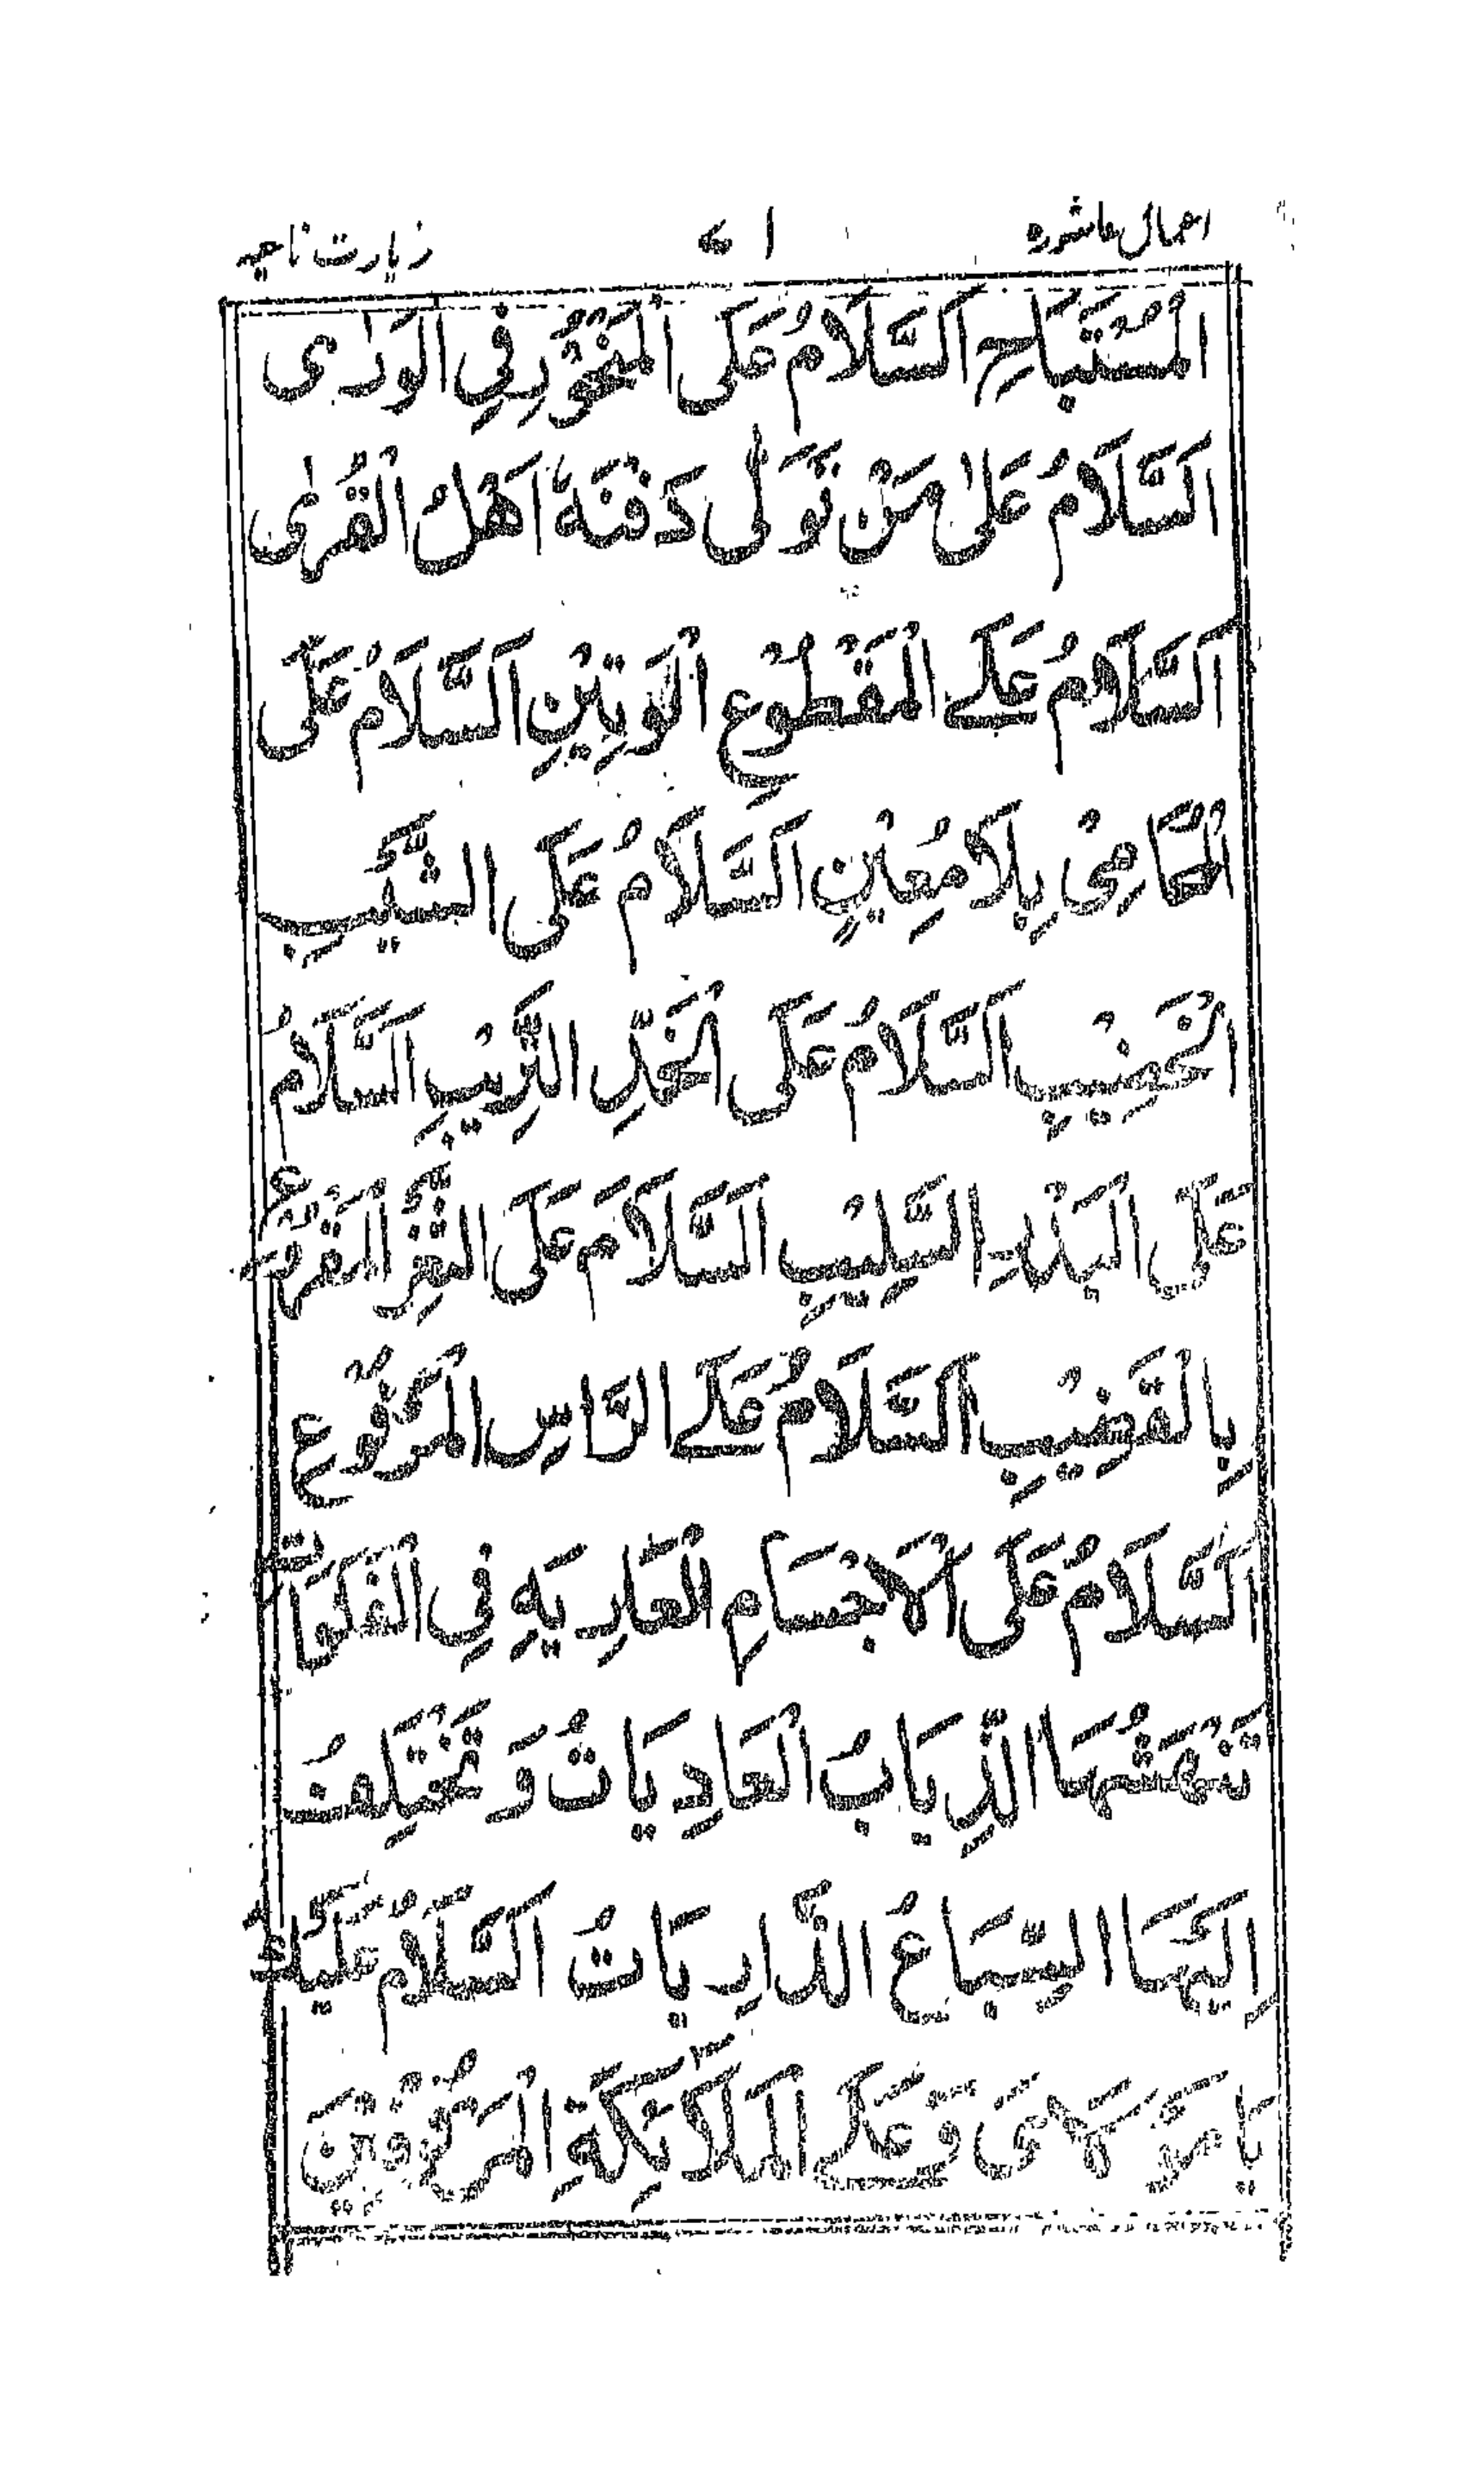 اعمال عاشوره ا زیارت ناحیه
الْمُسْتَبَاحِ اَلسَّلَامُ عَلَى الْمَنْحُوْرِ فِي الْوَرٰى
اَلسَّلَامُ عَلٰى مَنْ تَوَلّٰى دَفْنَهٗ اَهْلُ الْقُرٰى
اَلسَّلَامُ عَلَے الْمَقْطُوْعِ الْوَتِيْنِ اَلسَّلَامُ عَلَى
الْمُحَامِيْ بِلَا مُعِيْنٍ اَلسَّلَامُ عَلَى الشَّيْبِ
الْخَضِيْبِ اَلسَّلَامُ عَلَى الْخَدِّ التَّرِيْبِ اَلسَّلَامُ
عَلَى الْبَدَنِ السَّلِيْبِ اَلسَّلَامُ عَلَى الثَّغْرِ الْمَقْرُوْعِ
بِالْقَضِيْبِ اَلسَّلَامُ عَلَے الرَّاسِ الْمَرْفُوْعِ
اَلسَّلَامُ عَلَى الْاَجْسَامِ الْعَارِيَةِ فِي الْفَلَوَاتِ
تَنْهَشُهَا الذِّيَابُ الْعَادِيَاتُ وَ تَخْتَلِفُ
اِلَيْهَا السِّبَاعُ الضَّارِيَاتُ اَلسَّلَامُ عَلَيْكَ
يَا مَوْلَاىَ وَ عَلَے الْمَلَآئِكَةِ الْمَرْفُوْفِيْنَ